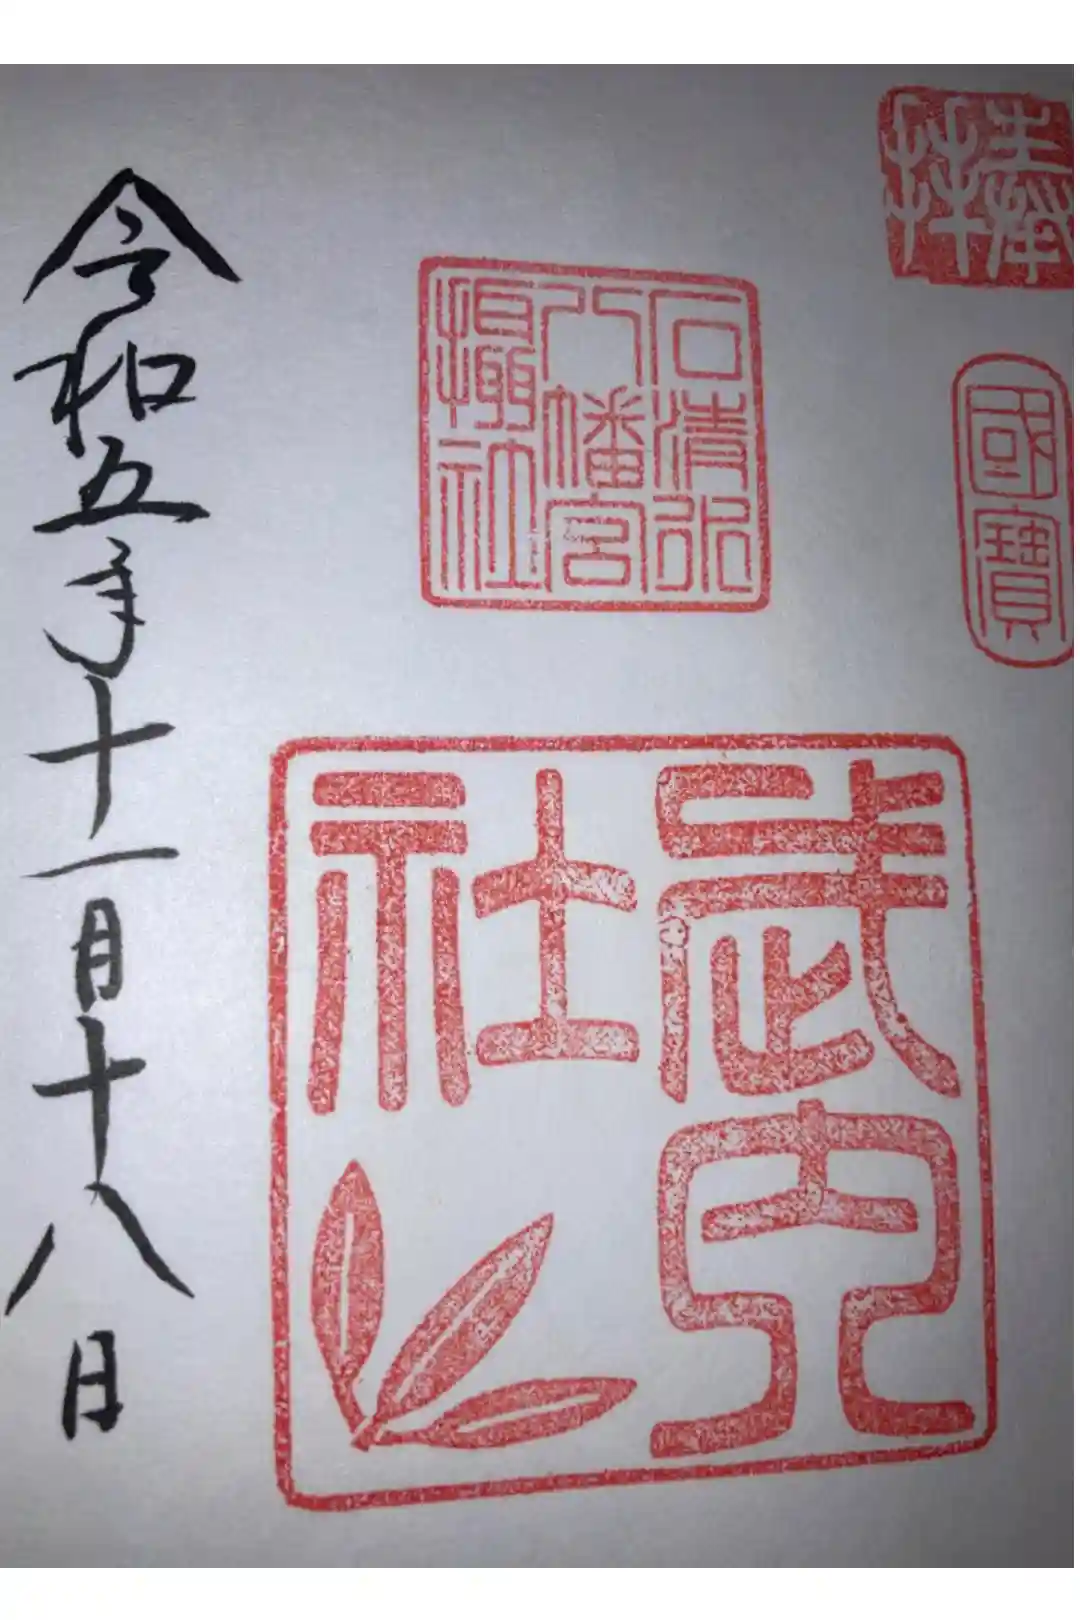 奉拝
國寶
石清水
八幡宮
攝社
武内
社
令和五年十一月十八日